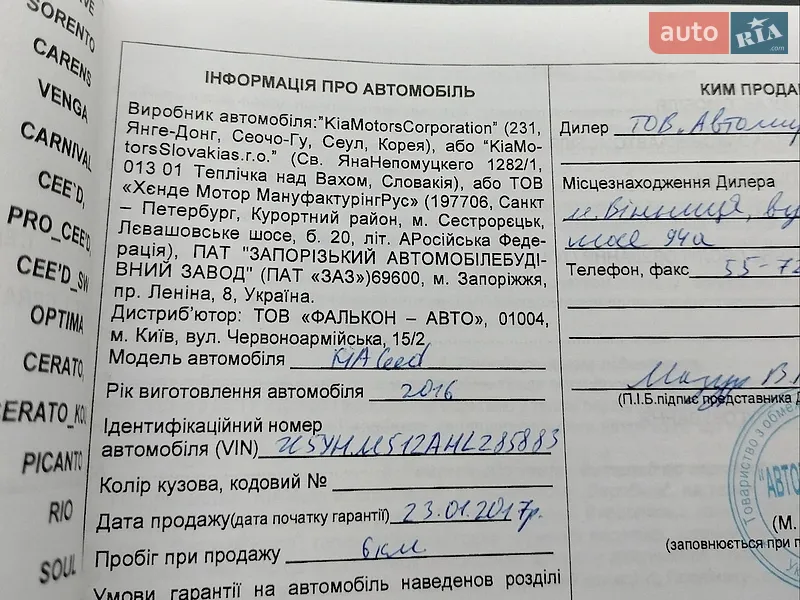 auto RIA .com
SORENTO
CARENS
VENGA
CARNIVAL
CEE'D,
PRO_CEE'D,
CEE'D_SW
OPTIMA
CERATO,
CERATO_KOU
PICANTO
RIO
SOUL
ІНФОРМАЦІЯ ПРО АВТОМОБІЛЬ
Виробник автомобіля:"KiaMotorsCorporation" (231,
Янге-Донг, Сеочо-Гу, Сеул, Корея), або "KiaMo-
torsSlovakias.r.o." (Св. ЯнаНепомуцкего 1282/1,
013 01 Теплічка над Вахом, Словакія), або ТОВ
«Хєнде Мотор МануфактурінгРус» (197706, Санкт
– Петербург, Курортний район, м. Сестрорецьк,
Лєвашовське шосе, б. 20, літ. АРосійська Феде-
рація), ПАТ "ЗАПОРІЗЬКИЙ АВТОМОБІЛЕБУДІ-
ВНИЙ ЗАВОД" (ПАТ «ЗАЗ»)69600, м. Запоріжжя,
пр. Леніна, 8, Україна.
Дистриб'ютор: ТОВ «ФАЛЬКОН – АВТО», 01004,
м. Київ, вул. Червоноармійська, 15/2
Модель автомобіля KIA Ceed
Рік виготовлення автомобіля 2016
Ідентифікаційний номер
автомобіля (VIN) U5YHM512AHL285883
Колір кузова, кодовий №
Дата продажу(дата початку гарантії) 23.01.2017р.
Пробіг при продажу 6 км
Умови гарантії на автомобіль наведенов розділі
КИМ ПРОДА
Дилер ТОВ "Автомир
Місцезнаходження Дилера
м. Вінниця, ву
94а
Телефон, факс 55-72
Мазур В.
(П.І.Б.підпис представника Д
Товариство з обме
"АВТО
(М.
(заповнюється при п